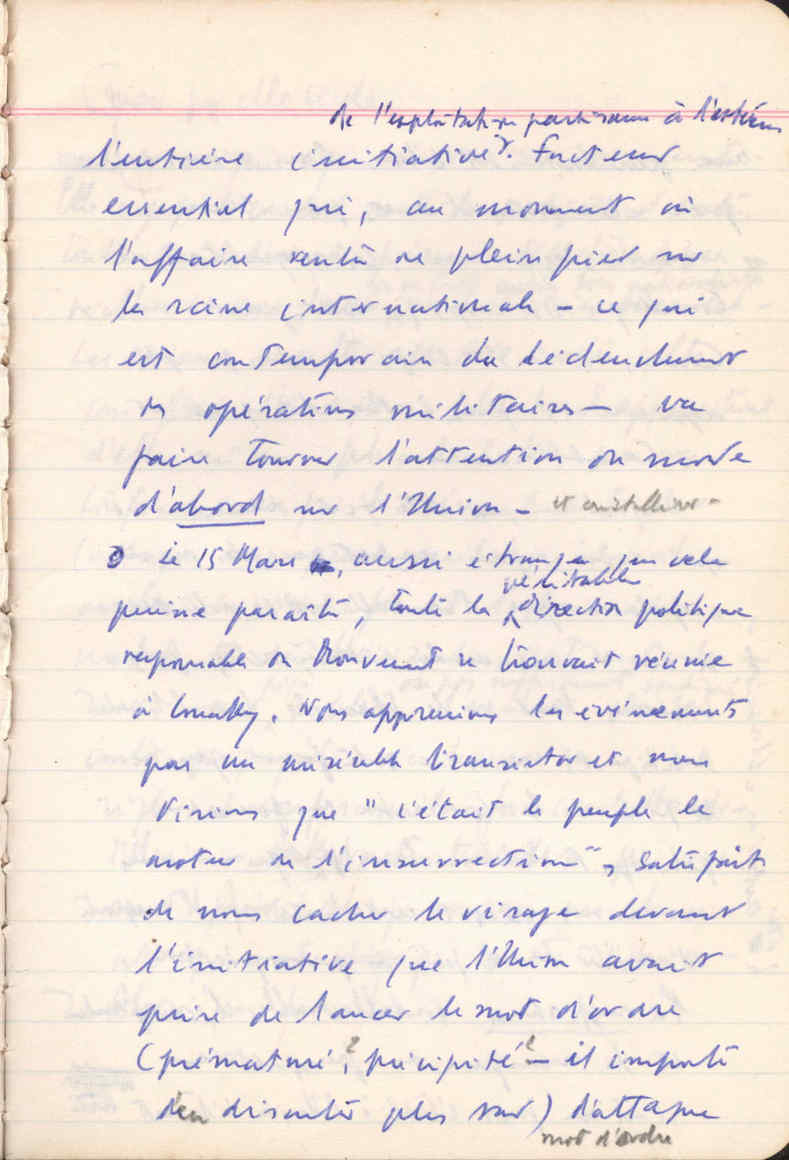 de l'exploitation partisane à l'extérieur
l'entière initiative. Facteur
essentiel qui, au moment où
l'affaire rentre de plein pied sur
la scène internationale – ce qui
est contemporain du déclenchement
des opérations militaires – va
faire tourner l'attention du monde
d'abord sur l'Union – et cristalliser –
Le 15 Mars, aussi étrange que cela
puisse paraître, toute la véritable direction politique
responsable du Mouvement se trouvait réunie
à Conakry. Nous apprenions les événements
par un misérable transistor et nous
disions que "c'était le peuple le
moteur de l'insurrection", satisfaits
de nous cacher le visage devant
l'initiative que l'Union avait
prise de lancer le mot d'ordre
(prématuré ?, précipité ? – il importe
d'en discuter plus tard) d'attaque
mot d'ordre